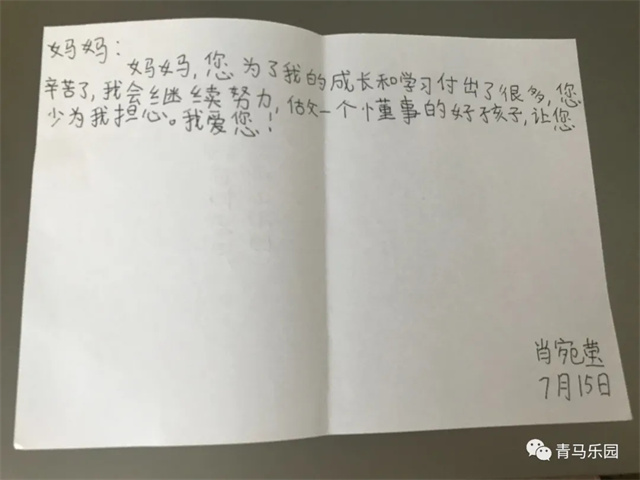 妈妈：
妈妈，您为了我的成长和学习付出了很多，您
辛苦了，我会继续努力，做一个懂事的好孩子，让您
少为我担心。我爱您！
肖宛莹
7月15日
青马乐园